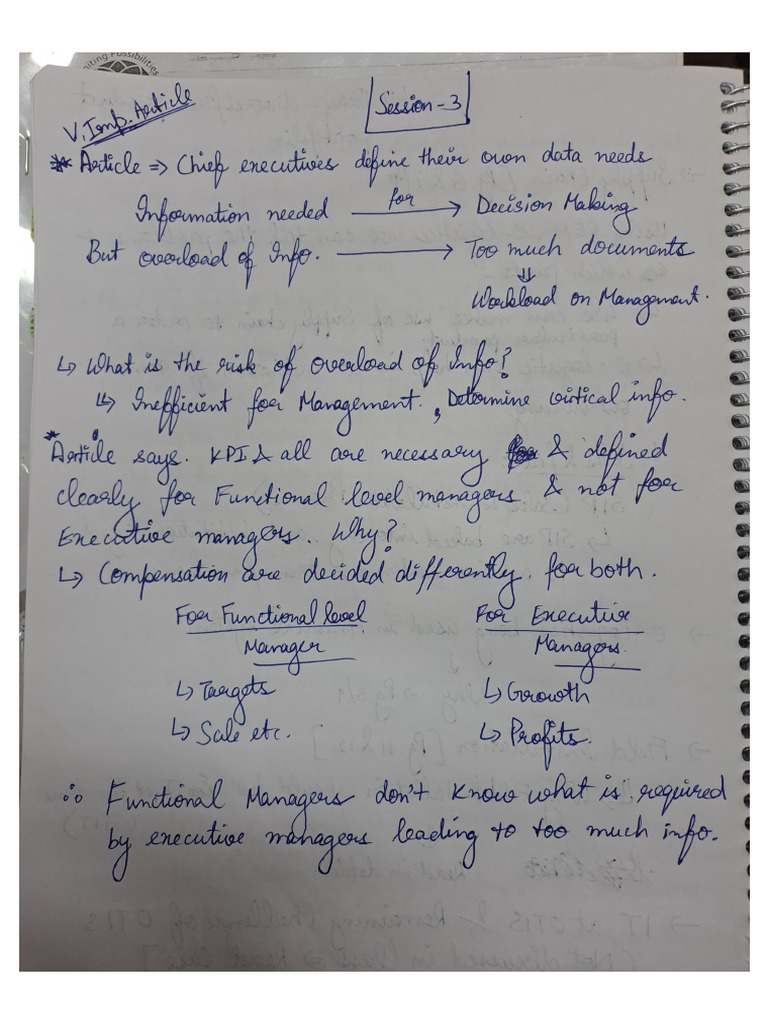 Session - 3
V. Imp. Article
* Article => Chief executives define their own data needs
Information needed for → Decision Making
But overload of Info. → Too much documents
⇓
Workload on Management.
↳ What is the risk of overload of Info?
↳ Inefficient for Management. , Determine virtical info.
* Article says. KPI & all are necessary & defined
clearly for Functional level managers & not for
Executive managers. Why?
↳ Compensation are decided differently. for both.
For Functional level For Executive
Manager Managers.
↳ Targets ↳ Growth
↳ Sale etc. ↳ Profits.
∴ Functional Managers don't know what is required
by executive managers leading to too much info.